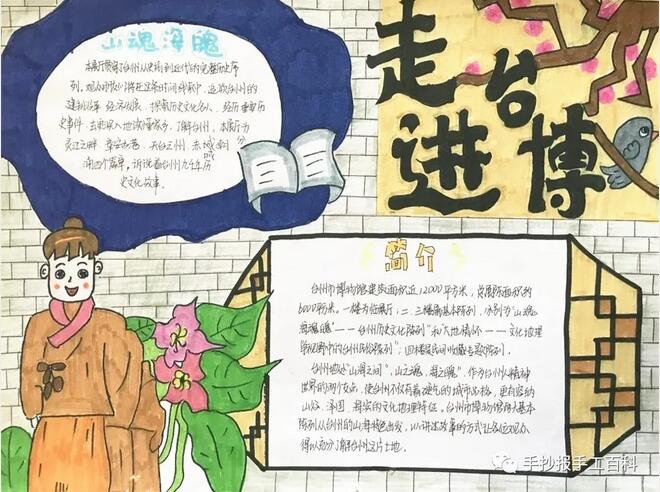 走进台博
山魂海魄
本展厅贯穿了台州从史前到近代的完整历史序
列,观众朋友们将在这条时间线索中,
建制沿革 经济发展,探秘历史文化名人,经历重要历
史事件,去更深入地读懂家乡,了解台州。本展厅分
灵江之畔 天台 赤城
响四个篇章,诉说着台州九千年历
史文化故事。
简介
台州市博物馆建筑面积近12000平方米,展陈面积约
6000平方米。一楼为临展厅,二、三楼为基本陈列,分别为“山魂
海魄——台州历史文化陈列”和“大地情怀——文化地理
学视野中的台州民俗陈列”;四楼设民间收藏专题陈列。
台州地处“山海之间”,山之魂,海之魄,作为台州人精神
世界的两个支点,使台州不仅有着硬气的城市品格,更有容纳
山谷、泽国、海岸的文化地理特征。台州市博物馆两大基本
陈列从台州的山海特色出发,以讲述故事的方式让各位观众
得以充分了解台州这片土地。
手抄报手工百科